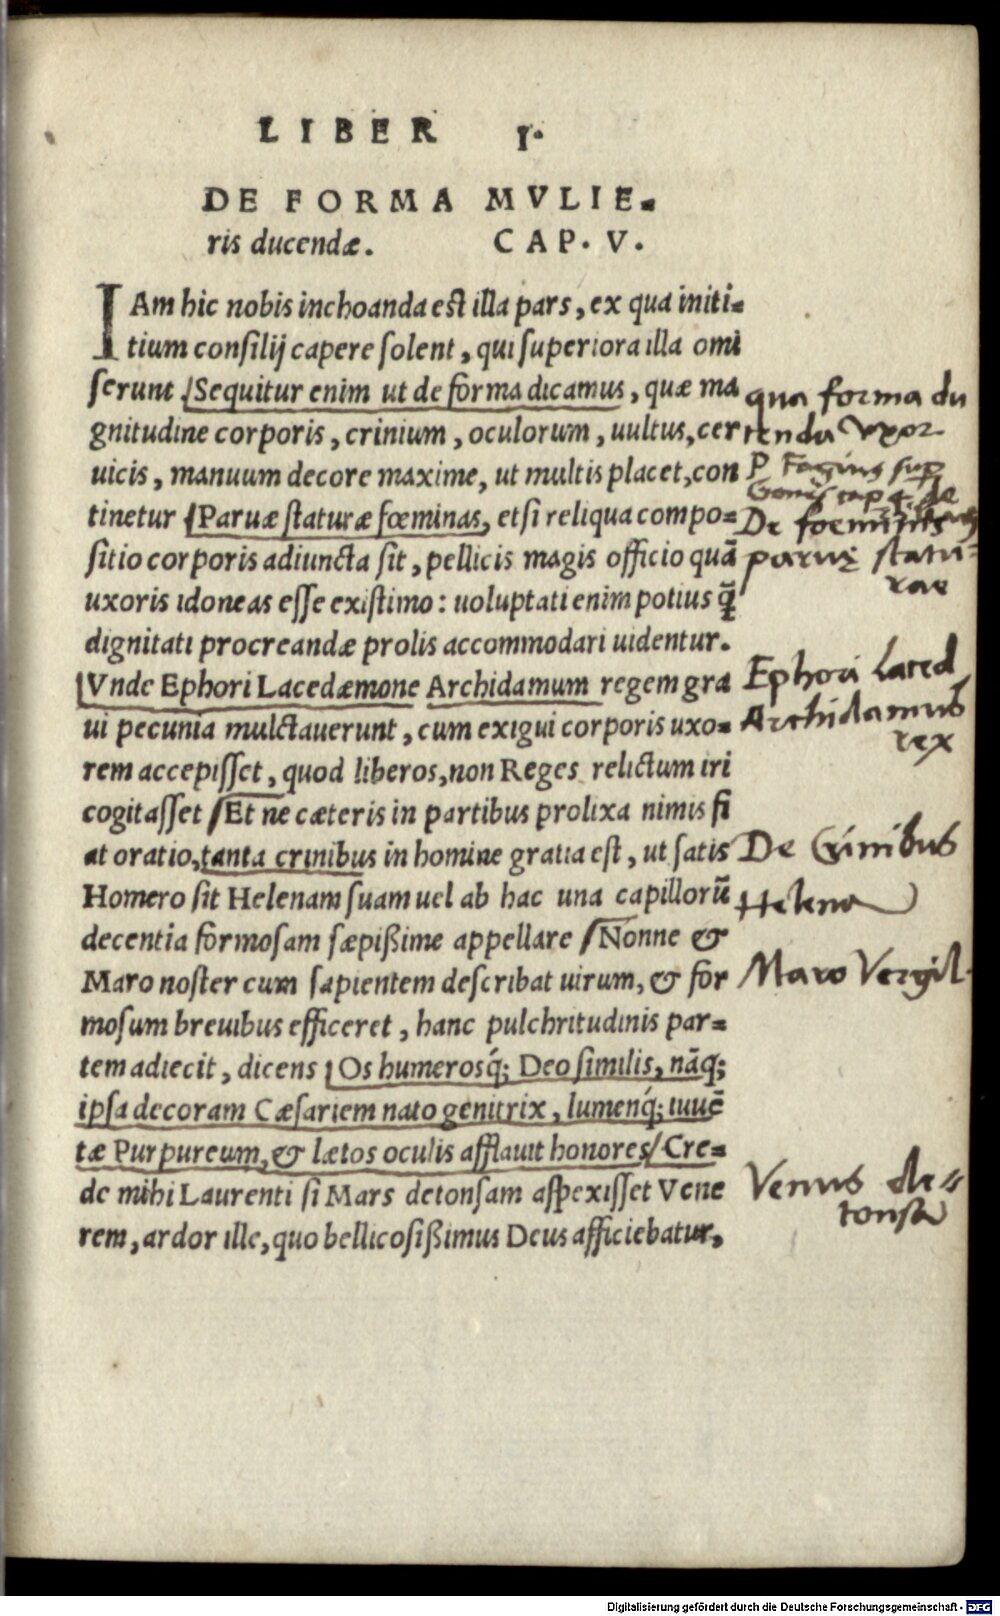 LIBER I.
DE FORMA MVLIE-
ris ducendæ. CAP. V.
IAm hic nobis inchoanda est illa pars, ex qua initi-
tium consilij capere solent, qui superiora illa omi
serunt Sequitur enim ut de forma dicamus, quæ ma
gnitudine corporis, crinium, oculorum, uultus, cer
uicis, manuum decore maxime, ut multis placet, con
tinetur Paruæ staturæ fœminas, etsi reliqua compo-
sitio corporis adiuncta sit, pellicis magis officio quā
uxoris idoneas esse existimo: uoluptati enim potius q̄
dignitati procreandæ prolis accommodari uidentur.
Vnde Ephori Lacedæmone Archidamum regem gra
ui pecunia mulctauerunt, cum exigui corporis uxo-
rem accepisset, quod liberos, non Reges relictum iri
cogitasset Et ne cæteris in partibus prolixa nimis fi
at oratio, tanta crinibus in homine gratia est, ut satis
Homero sit Helenam suam uel ab hac una capillorū
decentia formosam sæpißime appellare Nonne &
Maro noster cum sapientem describat uirum, & for
mosum breuibus efficeret, hanc pulchritudinis par-
tem adiecit, dicens Os humerosq́; Deo similis, nāq;
ipsa decoram Cæsariem nato genitrix, lumenq́; iuuē
tæ Purpureum, & lætos oculis afflauit honores Cre-
de mihi Laurenti si Mars detonsam aspexisset Vene
rem, ardor ille, quo bellicosißimus Deus afficiebatur,
qua forma du
cenda Vxor
P Fagius sup
De foeminis
paruę statu-
rae
Ephori Laced
Archidamus
rex
De Crinibus
Helena
Maro Vergil
Venus de-
tonsa
Digitalisierung gefördert durch die Deutsche Forschungsgemeinschaft - DFG